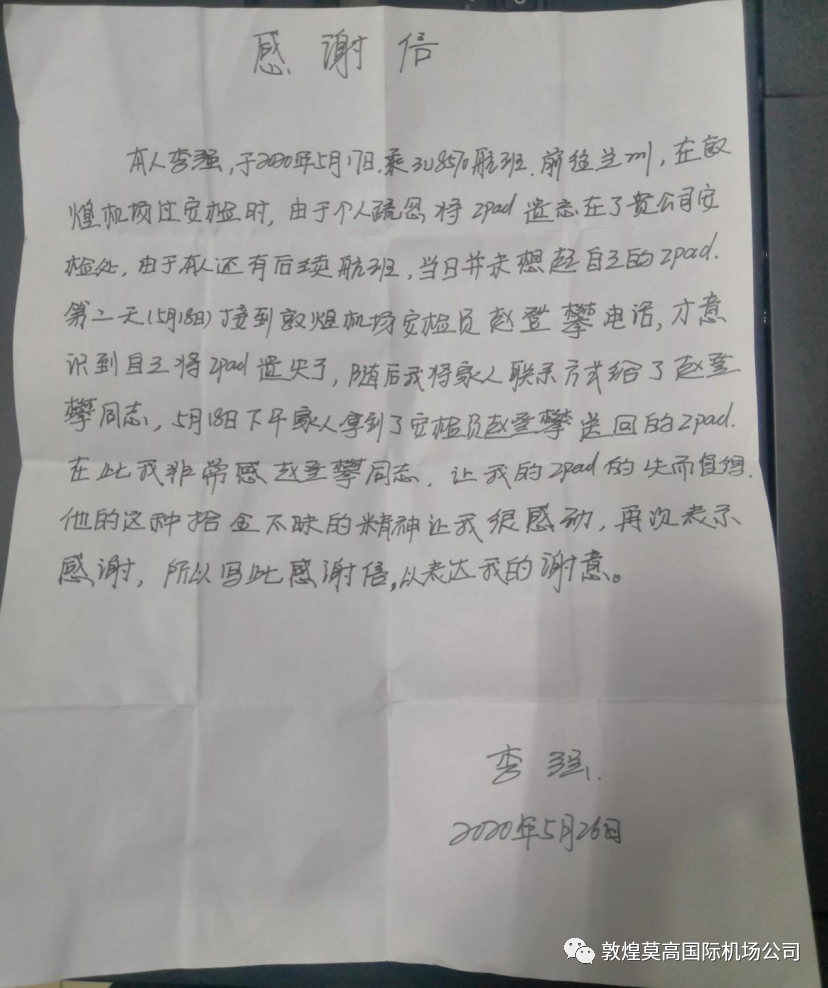 感谢信
本人李强,于2020年5月17日,乘3U8570航班.前往兰州,在敦
煌机场过安检时,由于个人疏忽将ipad遗忘在了贵公司安
检处,由于本人还有后续航班,当日并未想起自己的ipad.
第二天(5月18日)接到敦煌机场安检员赵登攀电话,才意
识到自己将ipad遗失了,随后我将家人联系方式给了赵登
攀同志,5月18日下午家人拿到了安检员赵登攀送回的ipad.
在此我非常感赵登攀同志,让我的ipad的失而复得.
他的这种拾金不昧的精神让我很感动,再次表示
感谢,所以写此感谢信,以表达我的谢意。
李强.
2020年5月26日
敦煌莫高国际机场公司